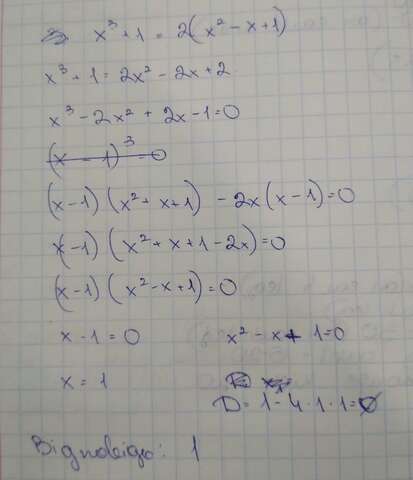 3. x³ + 1 = 2(x² - x + 1)
x³ + 1 = 2x² - 2x + 2
x³ - 2x² + 2x - 1 = 0
(x - 1)³ = 0
(x - 1)(x² + x + 1) - 2x(x - 1) = 0
(x - 1)(x² + x + 1 - 2x) = 0
(x - 1)(x² - x + 1) = 0
x - 1 = 0 x² - x + 1 = 0
x = 1
D = 1 - 4 · 1 · 1 = ∅
Відповідь: 1